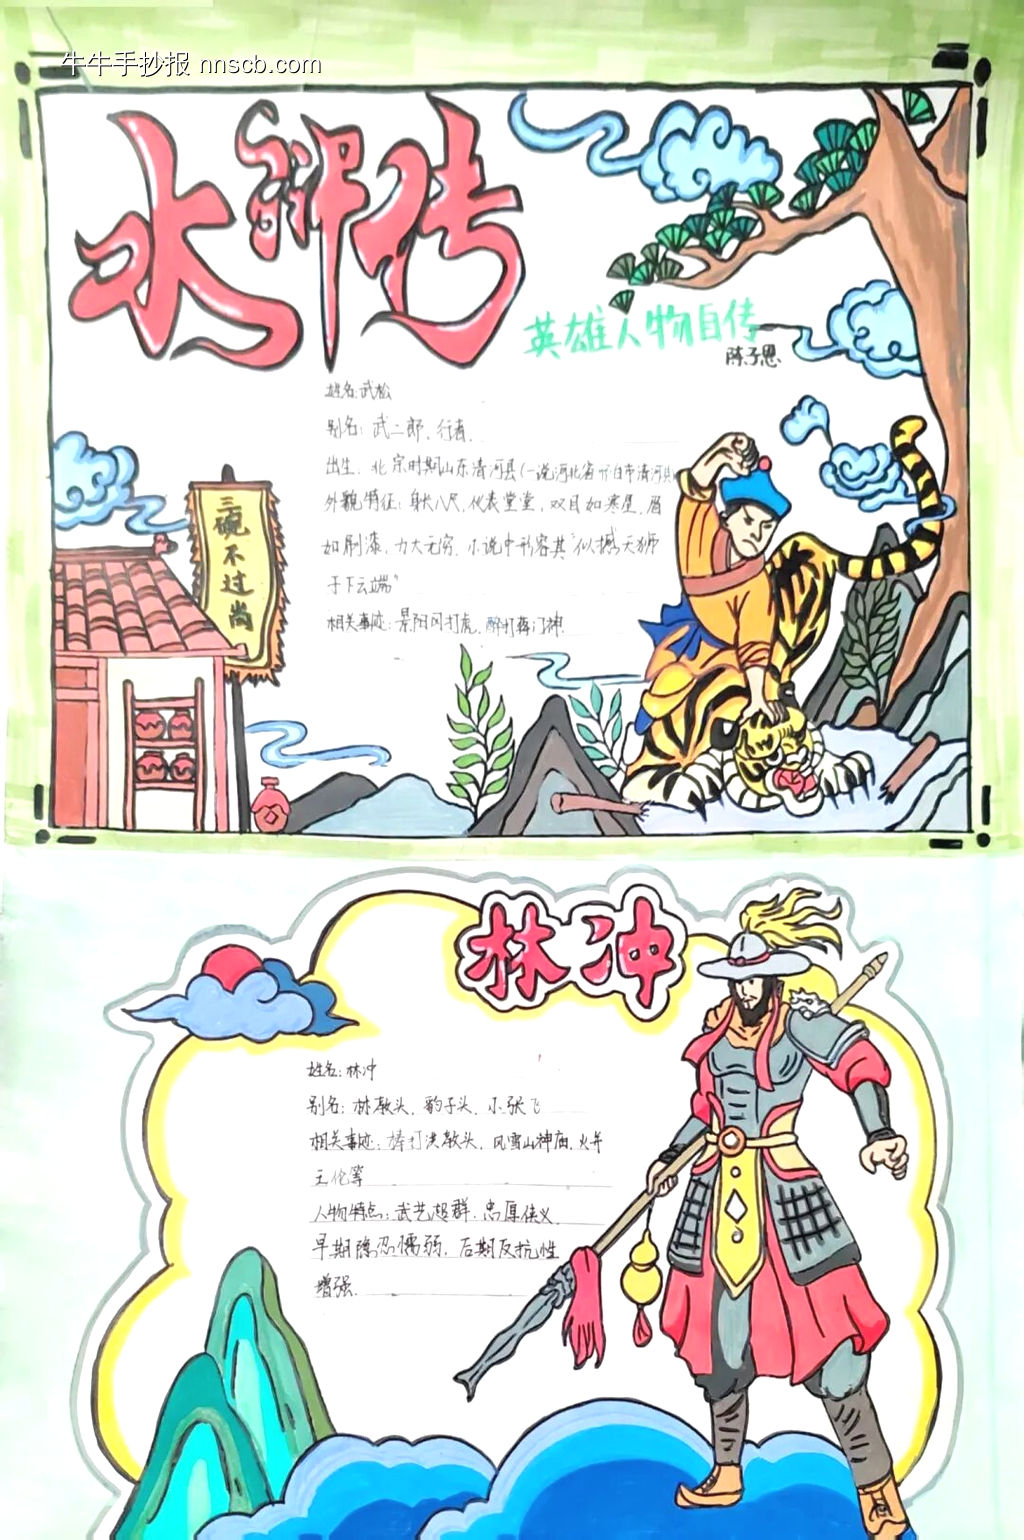 牛牛手抄报 nnscb.com
水浒传
英雄人物自传
陈子恩
姓名:武松
别名:武二郎、行者.
出生:北宗时期山东清河县(一说河北省
外貌特征:身长八尺,仪表堂堂,双目如寒星,眉
如刷漆,力大无穷,小说中形容其"似撼天狮
子下云端"
相关事迹:景阳冈打虎,醉打蒋门神.
三碗不过岗
林冲
姓名:林冲
别名:林教头、豹子头、小张飞
相关事迹:棒打洪教头、风雪山神庙、火并
王伦等
人物特点:武艺超群、忠厚侠义、
早期隐忍懦弱,后期反抗性
增强.